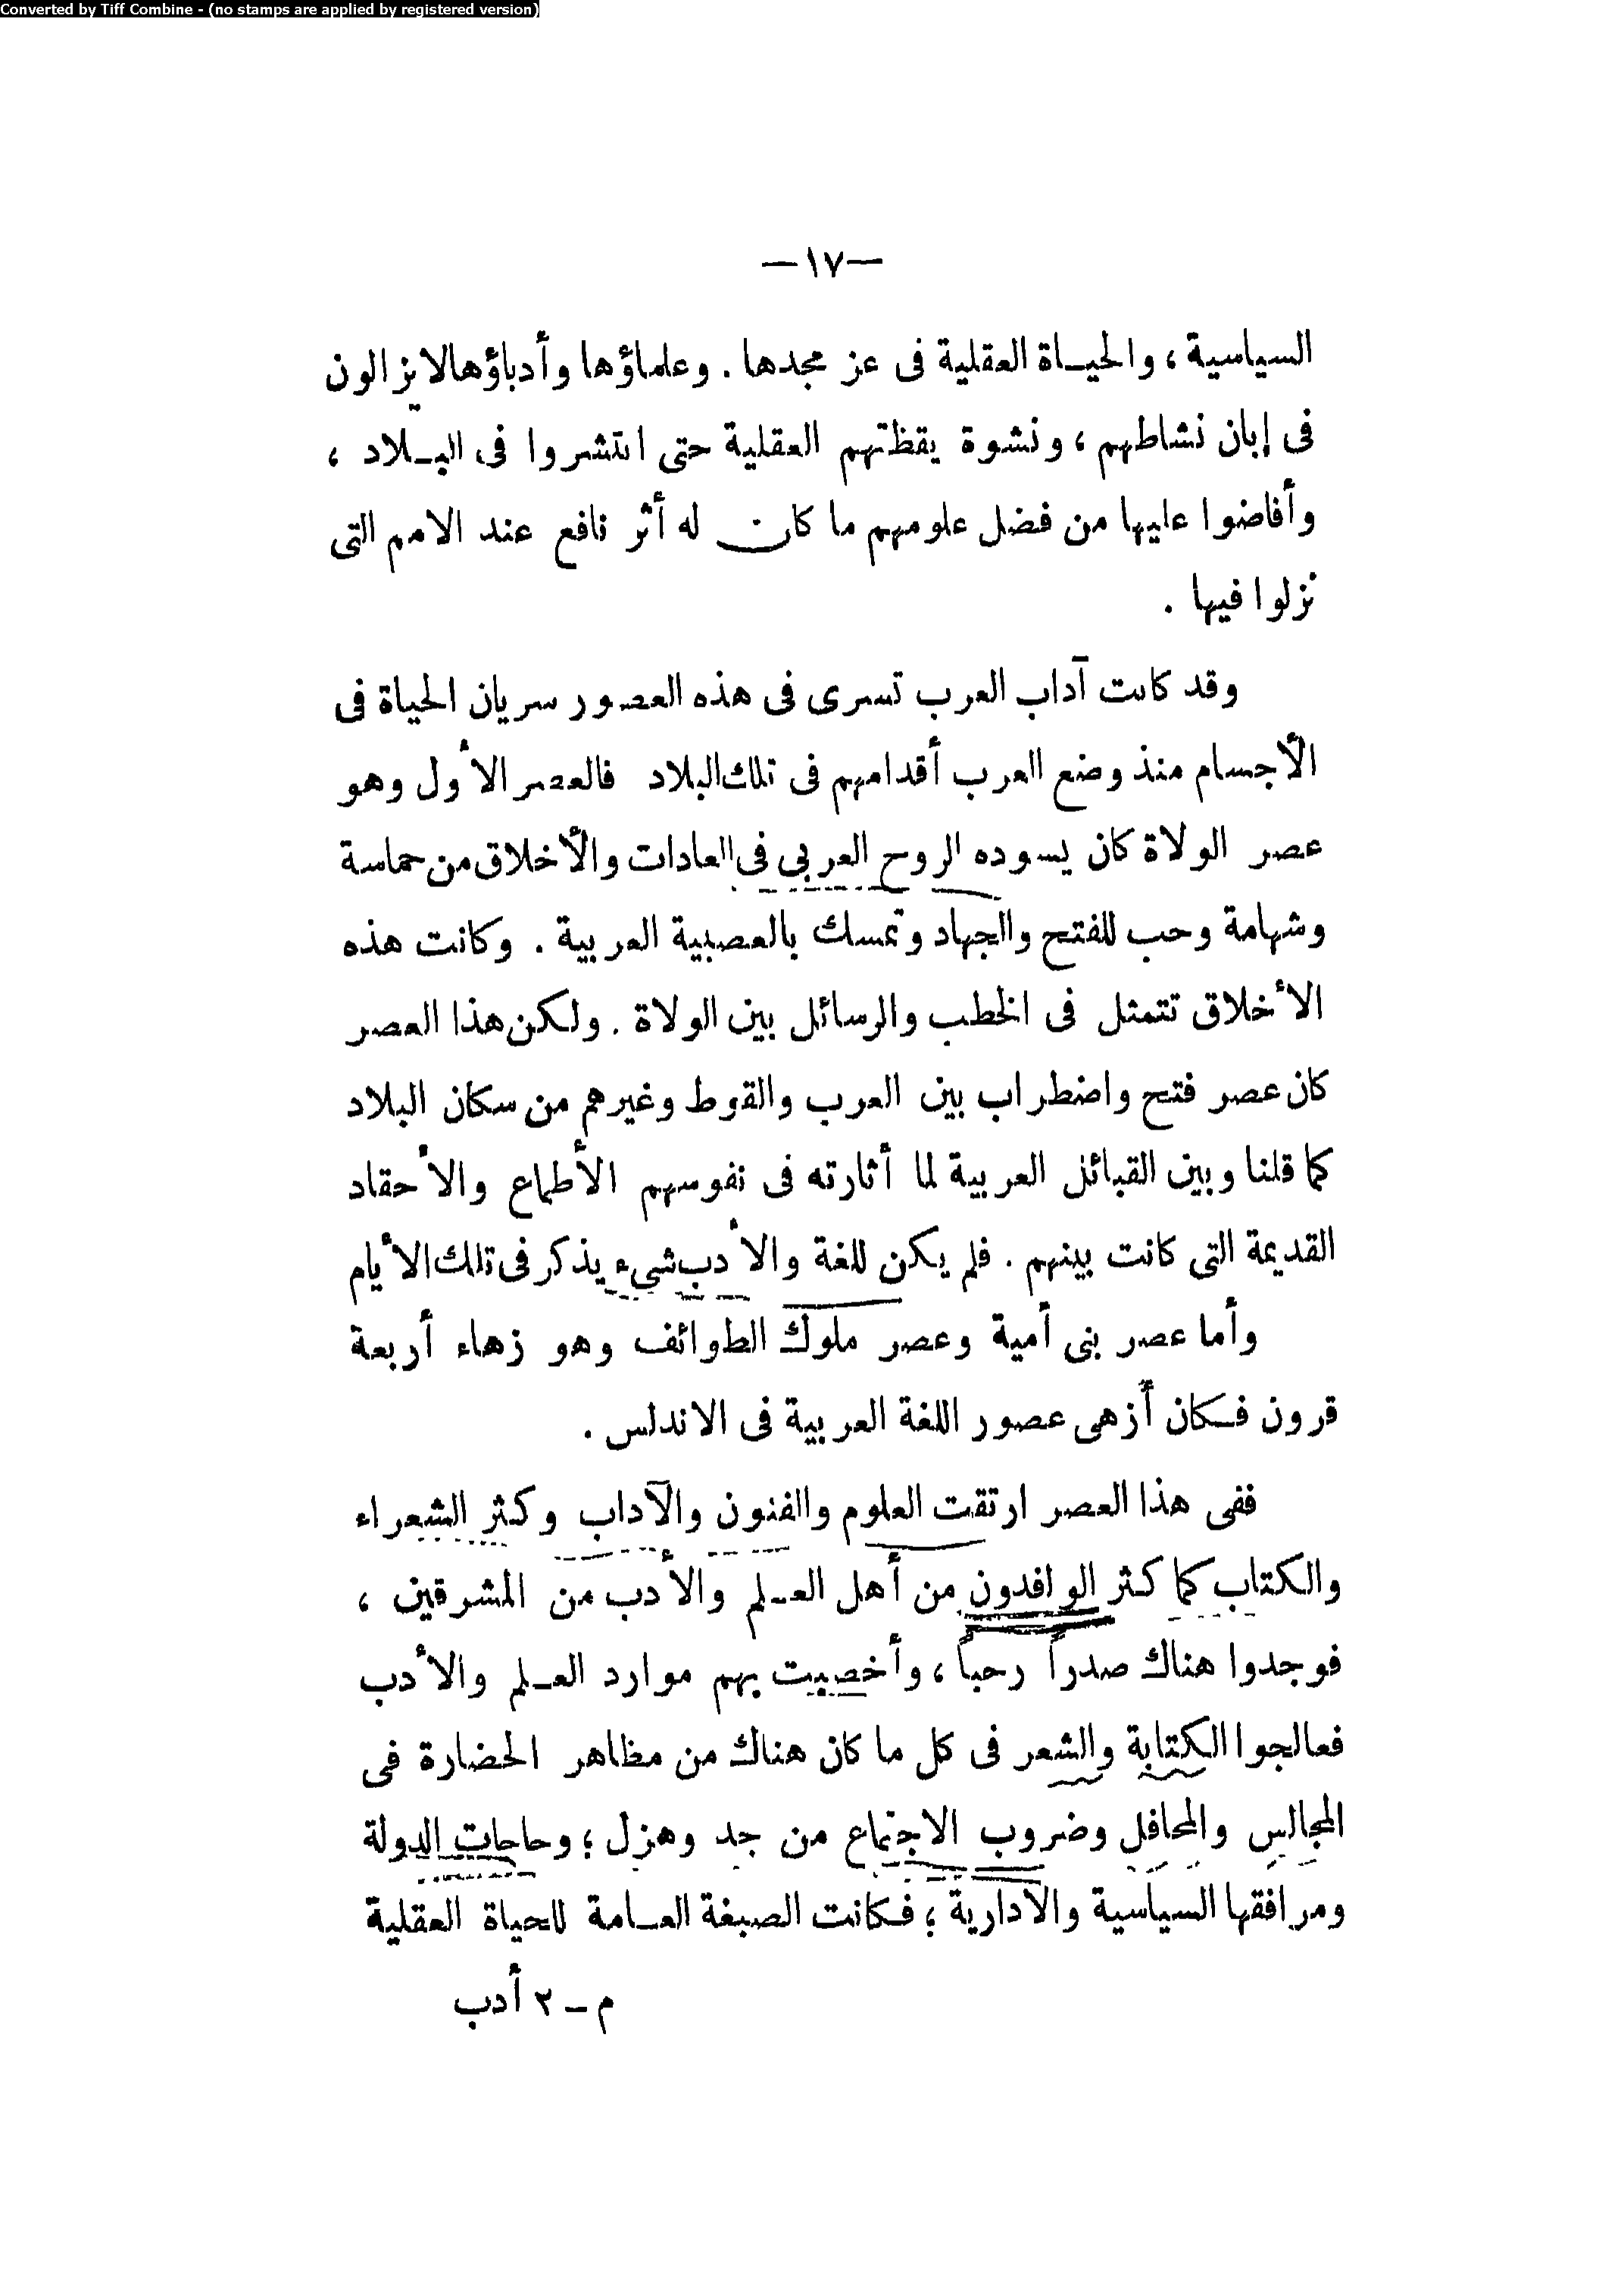 Converted by Tiff Combine - (no stamps are applied by registered version)
—١٧—
السياسية ، والحيـاة العقلية فى عز مجدها . وعلماؤها وأدباؤها لا يزالون
فى إبان نشاطهم ، ونشوة يقظتهم العقلية حتى انتشروا فى البـلاد ،
وأفاضوا عليها من فضل علومهم ما كان له أثر نافع عند الامم التى
نزلوا فيها .
وقد كانت آداب العرب تسرى فى هذه العصور سريان الحياة فى
الأجسام منذ وضع العرب أقدامهم فى تلك البلاد فالعصر الأول وهو
عصر الولاة كان يسوده الروح العربى فى العادات والأخلاق من حماسة
وشهامة وحب للفتح والجهاد وتمسك بالعصبية العربية . وكانت هذه
الأخلاق تتمثل فى الخطب والرسائل بين الولاة . ولكن هذا العصر
كان عصر فتح واضطراب بين العرب والقوط وغيرهم من سكان البلاد
كما قلنا وبين القبائل العربية لما أثارته فى نفوسهم الأطماع والأحقاد
القديمة التى كانت بينهم . فلم يكن للغة والأدب شىء يذكر فى تلك الأيام
وأما عصر بنى أمية وعصر ملوك الطوائف وهو زهاء أربعة
قرون فـكان أزهى عصور اللغة العربية فى الاندلس .
ففى هذا العصر ارتقت العلوم والفنون والآداب وكثر الشعراء
والكتاب كما كثر الوافدون من أهل العـلم والأدب من المشرقين ،
فوجدوا هناك صدراً رحباً ، وأخصبت بهم موارد العـلم والأدب
فعالجوا الكتابة والشعر فى كل ما كان هناك من مظاهر الحضارة فى
المجالس والمحافل وضروب الاجتماع من جد وهزل ؛ وحاجات الدولة
ومرافقها السياسية والادارية ؛ فـكانت الصبغة العـامة للحياة العقلية
م – ٢ أدب